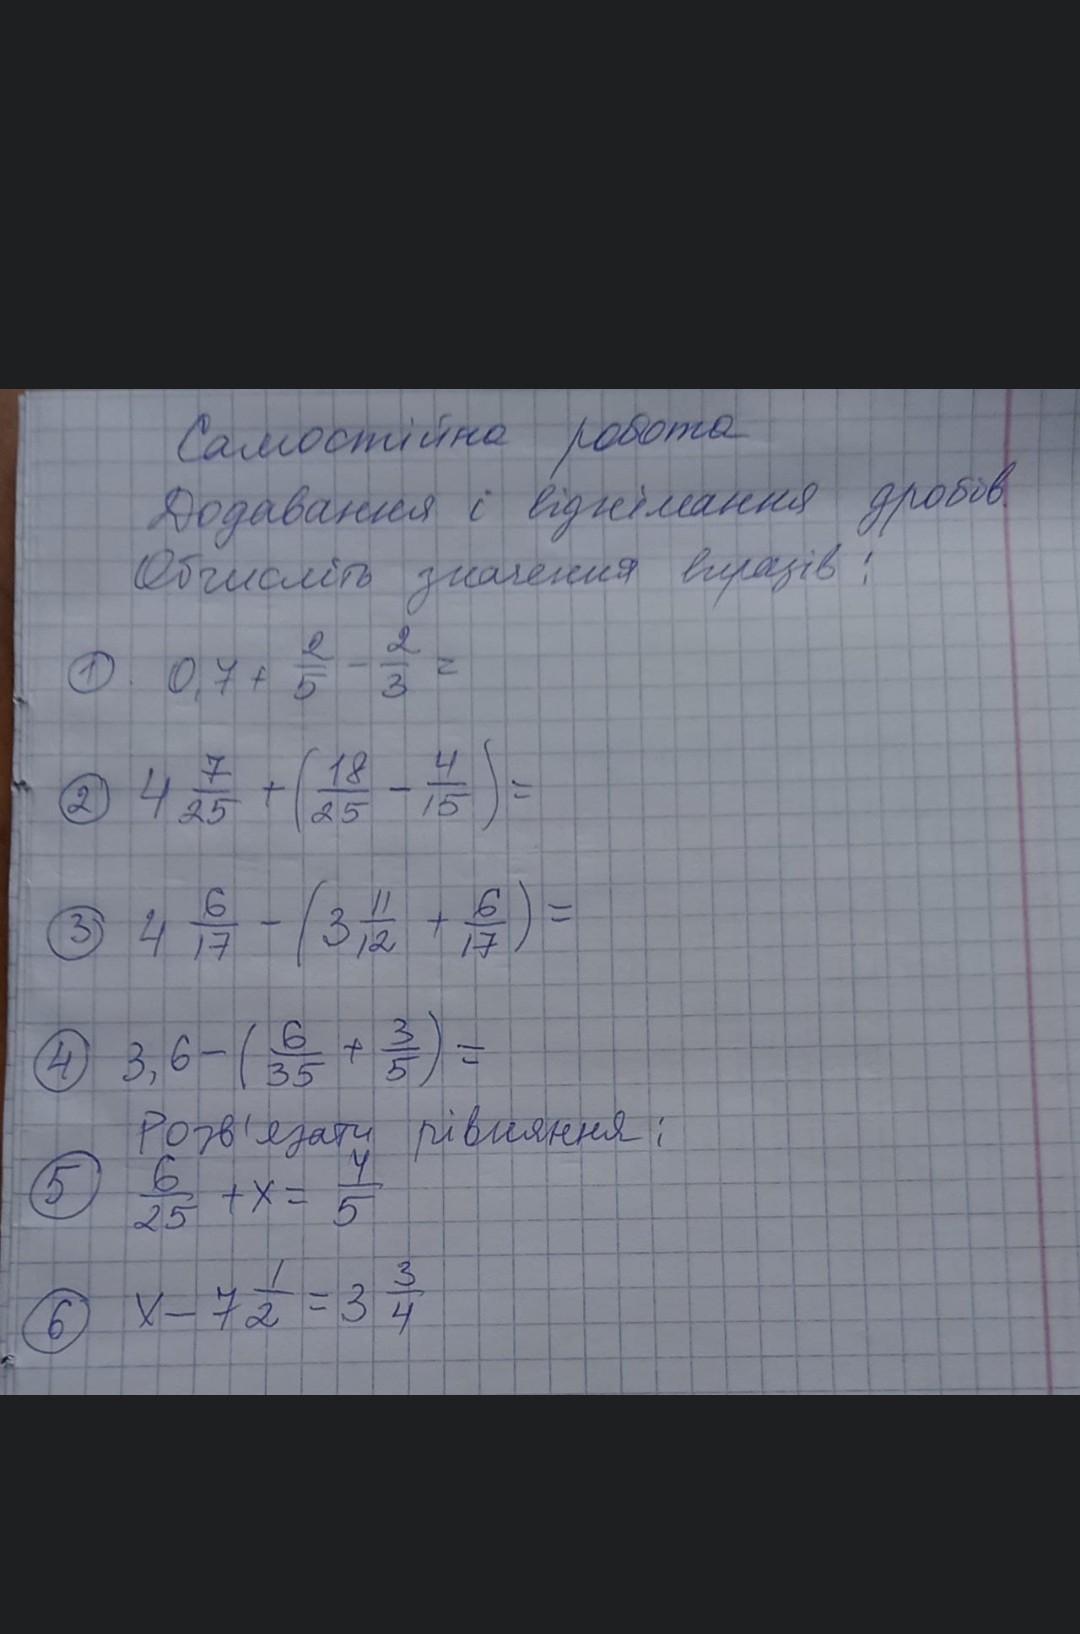 Самостійна робота
Додавання і віднімання дробів.
Обчисліть значення виразів:
① 0,7 + 2/5 - 2/3 =
② 4 7/25 + (18/25 - 4/15) =
③ 4 6/17 - (3 11/12 + 6/17) =
④ 3,6 - (6/35 + 3/5) =
Розв'язати рівняння:
⑤ 6/25 + x = 4/5
⑥ x - 7 1/2 = 3 3/4